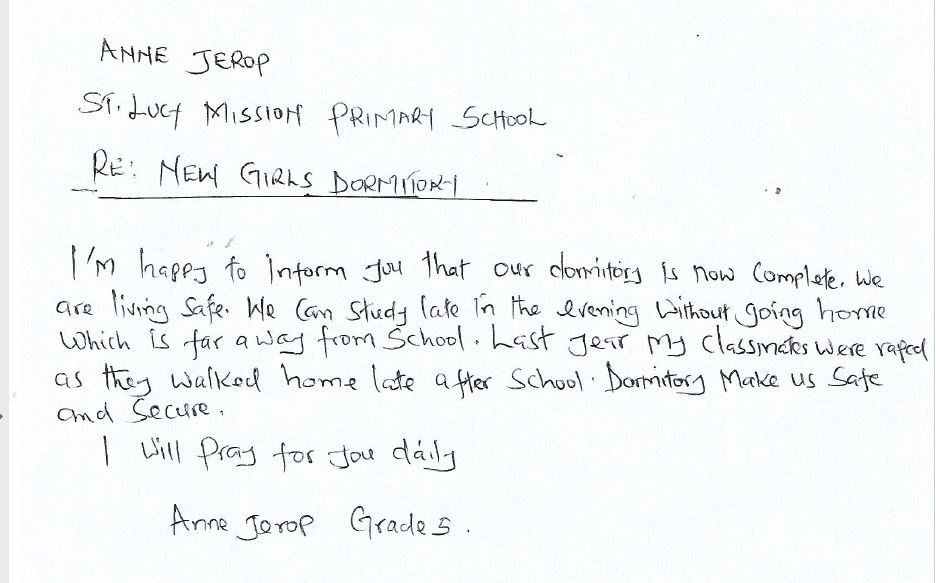 ANNE JEROP
ST. LUCY MISSION PRIMARY SCHOOL
RE: NEW GIRLS DORMITORY
I'm happy to inform you that our dormitory is now complete. We
are living safe. We can study late in the evening without going home
which is far away from school. Last year my classmates were raped
as they walked home late after school. Dormitory make us safe
and secure.
I will pray for you daily
Anne Jerop Grade 5.